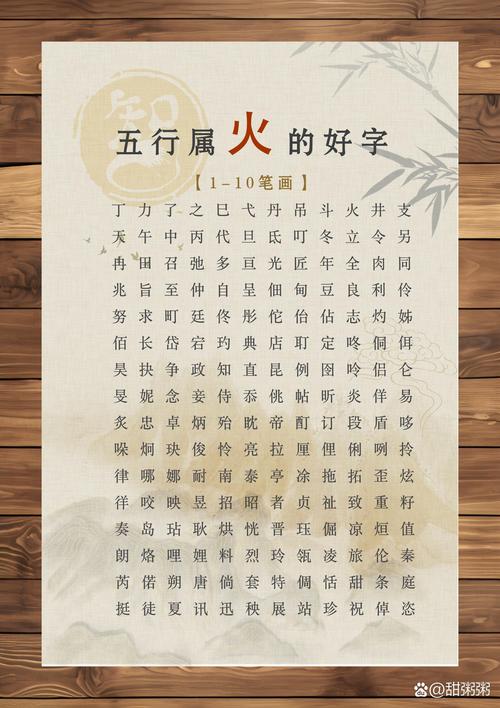 五行属火的好字
【1-10笔画】
丁力了之巳弋丹吊斗火井支
天午中丙代旦氐叮冬立令另
冉田召弛多亘光匠年全肉同
兆旨至仲自呈佃甸豆良利伶
努求町廷佟彤佗怡佔志灼姊
佰长岱宕玓典店耵定咚侗佴
昊抉争政知直昆例图呤侣仑
旻妮念妾侍忝佻帖昕炎佯易
炙忠卓炳殆眈帝酊订段盾哆
哚炯玦俊怜亮拉厘俚俐咧拎
律哪娜耐南泰亭涂拖拓歪炫
徉咬映昱招昭者贞祉致重籽
奏岛玷耿烘恍晋珏倔凉烜值
朗烙哩娌料烈玲瓴凌旅伦秦
芮偌朔唐倘套特倜恬甜条庭
挺徒夏讯迅秧展站珍祝倬恣
@甜粥粥